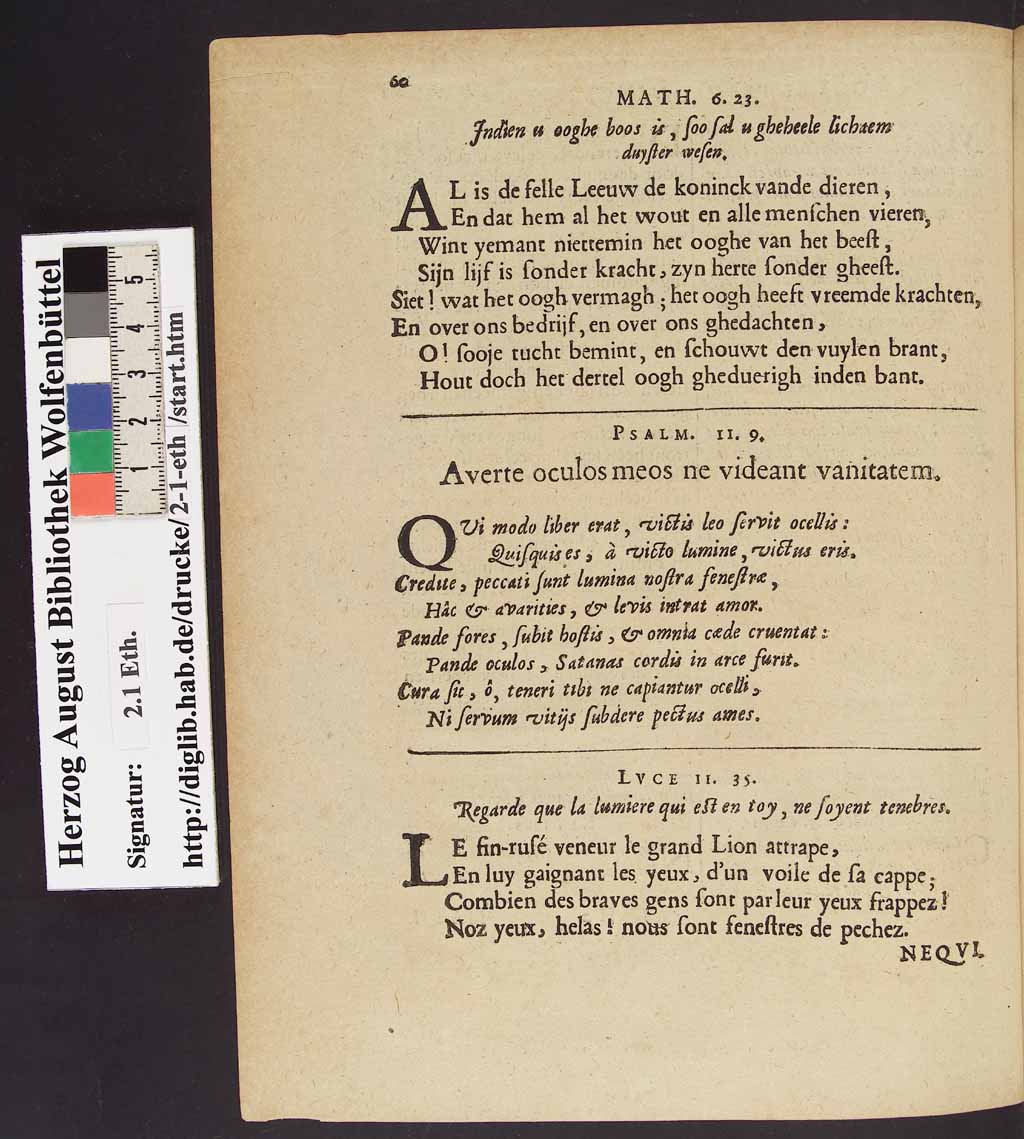 60
MATH. 6. 23.
Indien u ooghe boos is, soo sal u gheheele lichaem
duyster wesen.
AL is de felle Leeuw de koninck vande dieren,
En dat hem al het wout en alle menschen vieren,
Wint yemant niettemin het ooghe van het beest,
Sijn lijf is sonder kracht, zyn herte sonder gheest.
Siet! wat het oogh vermagh; het oogh heeft vreemde krachten,
En over ons bedrijf, en over ons ghedachten,
O! sooje tucht bemint, en schouwt den vuylen brant,
Hout doch het dertel oogh gheduerigh inden bant.
PSALM. 11. 9.
Averte oculos meos ne videant vanitatem.
QUi modo liber erat, victis leo servit ocellis:
Quisquis es, à victo lumine, victus eris.
Credite, peccati sunt lumina nostra fenestræ,
Hâc & avarities, & levis intrat amor.
Pande fores, subit hostis, & omnia cæde cruentat:
Pande oculos, Satanas cordis in arce furit.
Cura sit, ô, teneri tibi ne capiantur ocelli,
Ni servum vitijs subdere pectus ames.
LVCE 11. 35.
Regarde que la lumiere qui est en toy, ne soyent tenebres.
LE fin-rusé veneur le grand Lion attrape,
En luy gaignant les yeux, d'un voile de sa cappe;
Combien des braves gens sont par leur yeux frappez!
Noz yeux, helas! nous sont fenestres de pechez.
NEQVI.
Herzog August Bibliothek Wolfenbüttel
Signatur: 2.1 Eth.
http://diglib.hab.de/drucke/2-1-eth/start.htm
1 2 3 4 5